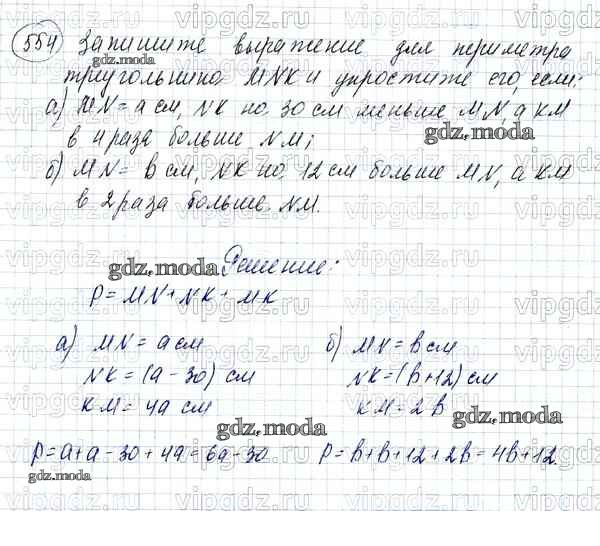 554 Запишите выражение для периметра
треугольника MNK и упростите его, если:
а) MN = a см, NK на 30 см меньше MN, а KM
в 4 раза больше NM;
б) MN = b см, NK на 12 см больше MN, а KM
в 2 раза больше NM.
Решение:
P = MN + NK + MK
а) MN = a см
NK = (a - 30) см
KM = 4a см
P = a + a - 30 + 4a = 6a - 30
б) MN = b см
NK = (b + 12) см
KM = 2b
P = b + b + 12 + 2b = 4b + 12.
gdz.moda
gdz.moda
gdz.moda
gdz.moda
gdz.moda
gdz.moda
gdz.moda
vipgdz.ru